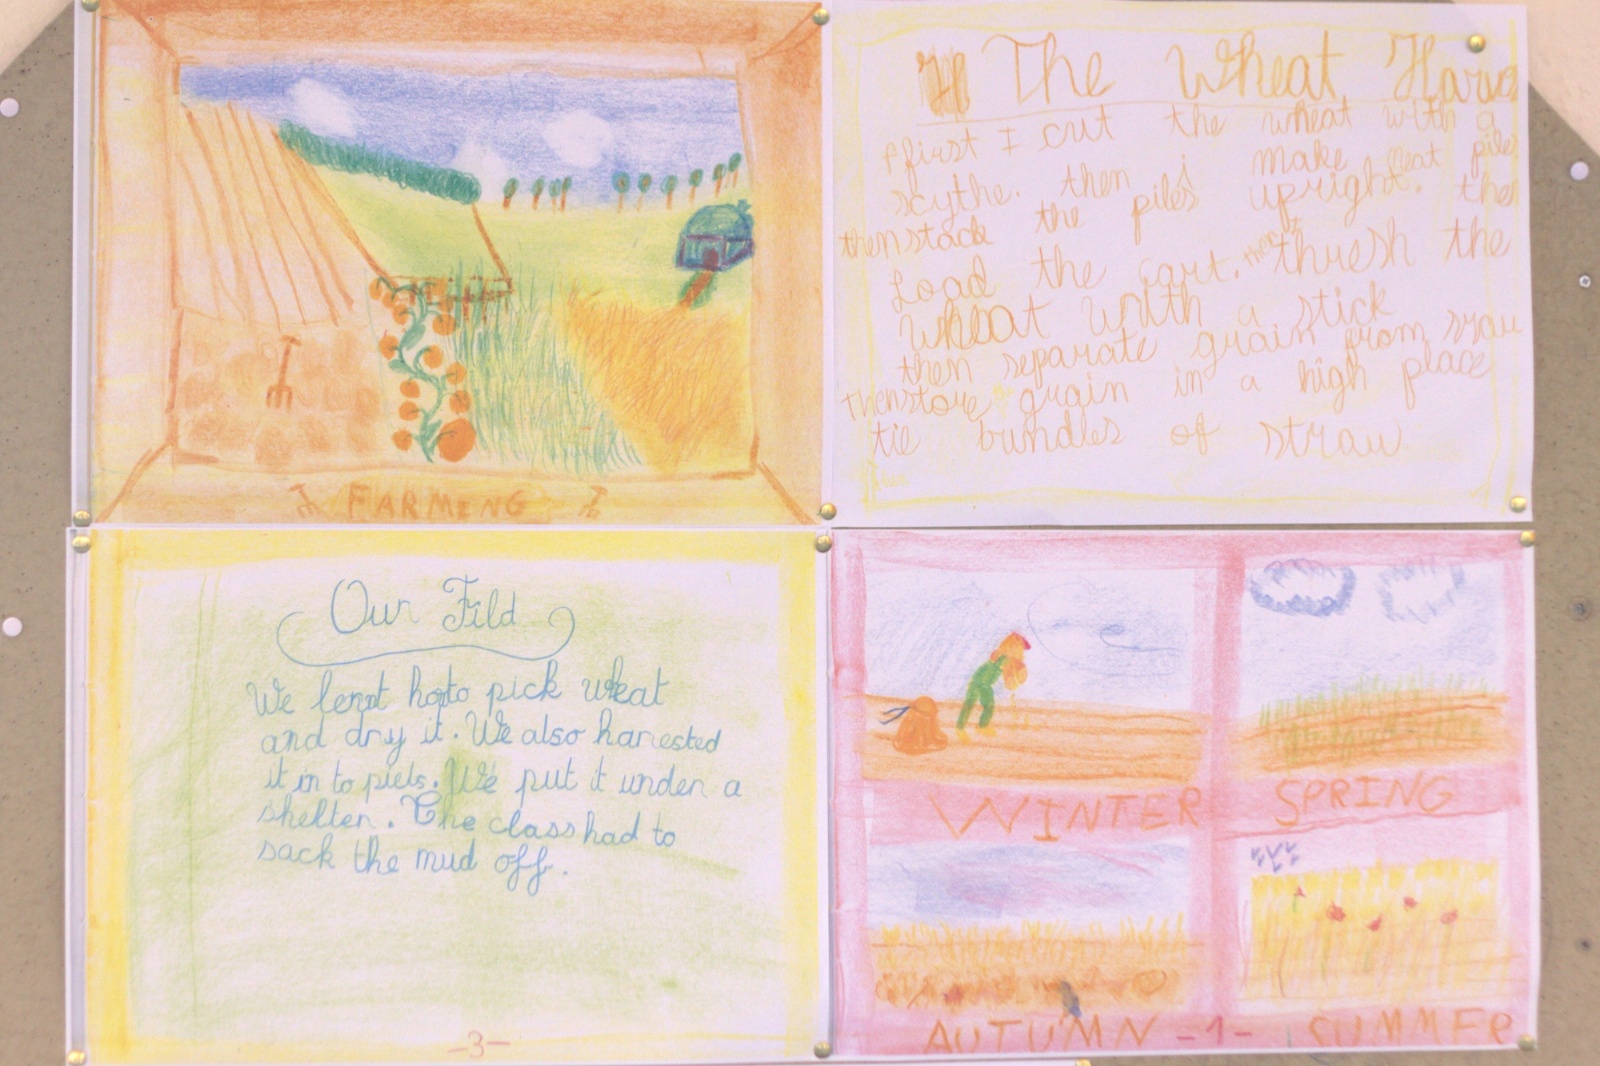 FARMING
The Wheat Harv
first I cut the wheat with a
scythe. then i make neat piles
then stack the piles upright. then
Load the cart. then thresh the
wheat with a stick
then separate grain from straw
then store grain in a high place
tie bundles of straw
Our Fild
We lernt how to pick wheat
and dry it. We also harested
it in to piels. We put it under a
shelter. The class had to
sack the mud off.
-3-
WINTER SPRING
AUTUMN -1- SUMMER